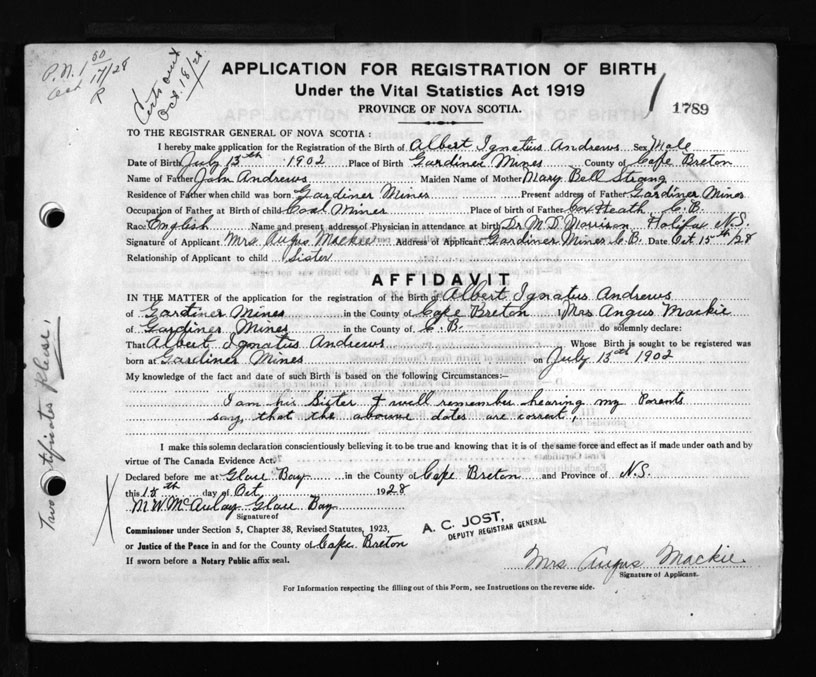 P.N. 1 50
Oct 17/28
R
Certs sent
Oct. 18/28.
APPLICATION FOR REGISTRATION OF BIRTH
Under the Vital Statistics Act 1919
PROVINCE OF NOVA SCOTIA.
1789
TO THE REGISTRAR GENERAL OF NOVA SCOTIA:
I hereby make application for the Registration of the Birth of Albert Ignatius Andrews Sex Male
Date of Birth July 13th 1902 Place of Birth Gardiner Mines County of Cape Breton
Name of Father John Andrews Maiden Name of Mother Mary Bell Strang
Residence of Father when child was born Gardiner Mines Present address of Father Gardiner Mines
Occupation of Father at Birth of child Coal Miner Place of birth of Father Cox Heath C.B.
Race English Name and present address of Physician in attendance at birth Dr M.D. Morrison Halifax N.S.
Signature of Applicant Mrs Angus Mackie Address of Applicant Gardiner Mines C.B. Date Oct 15th 28
Relationship of Applicant to child Sister
AFFIDAVIT
IN THE MATTER of the application for the registration of the Birth of Albert Ignatus Andrews
of Gardiner Mines in the County of Cape Breton I Mrs Angus Mackie
of Gardiner Mines in the County of C.B. do solemnly declare:
That Albert Ignatus Andrews Whose Birth is sought to be registered was
born at Gardiner Mines on July 13th 1902
My knowledge of the fact and date of such Birth is based on the following Circumstances:—
I am his Sister & well remember hearing my Parents
say, that the above dates are correct,
I make this solemn declaration conscientiously believing it to be true and knowing that it is of the same force and effect as if made under oath and by
virtue of The Canada Evidence Act.
Declared before me at Glace Bay in the County of Cape Breton and Province of N.S.
this 15th day of Oct 1928
M.W. McAulay Glace Bay
Signature of
Commissioner under Section 5, Chapter 38, Revised Statutes, 1923,
or Justice of the Peace in and for the County of Cape Breton
If sworn before a Notary Public affix seal.
A. C. JOST,
DEPUTY REGISTRAR GENERAL
Mrs Angus Mackie
Signature of Applicant.
For Information respecting the filling out of this Form, see Instructions on the reverse side.
Two certificates please,